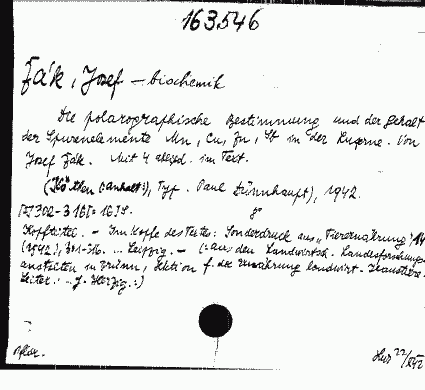 163.546
Fák, Josef — biochemik
Die polarographische Bestimmung und der Gehalt
der Spurenelemente Mn, Cu, Zn, in der Luzerne. Von
Josef Fák. Mit 4 abgbd. im Text.
(Köthen (:Anhalt:), Typ. Paul Dünnhaupt), 1942.
[302-316]= 16 S. 8°
Kopftitel. – Im Kopfe des Textes: Sonderdruck aus „Tierernährung" 14
(1942), 301-316. ... Leipzig. – (: aus den Landwirtsch. Landesforschungs-
anstalten in Brünn, Sektion f. die Ernährung landwirt. Haustiere.
Leiter: ... J. Herzig. :)